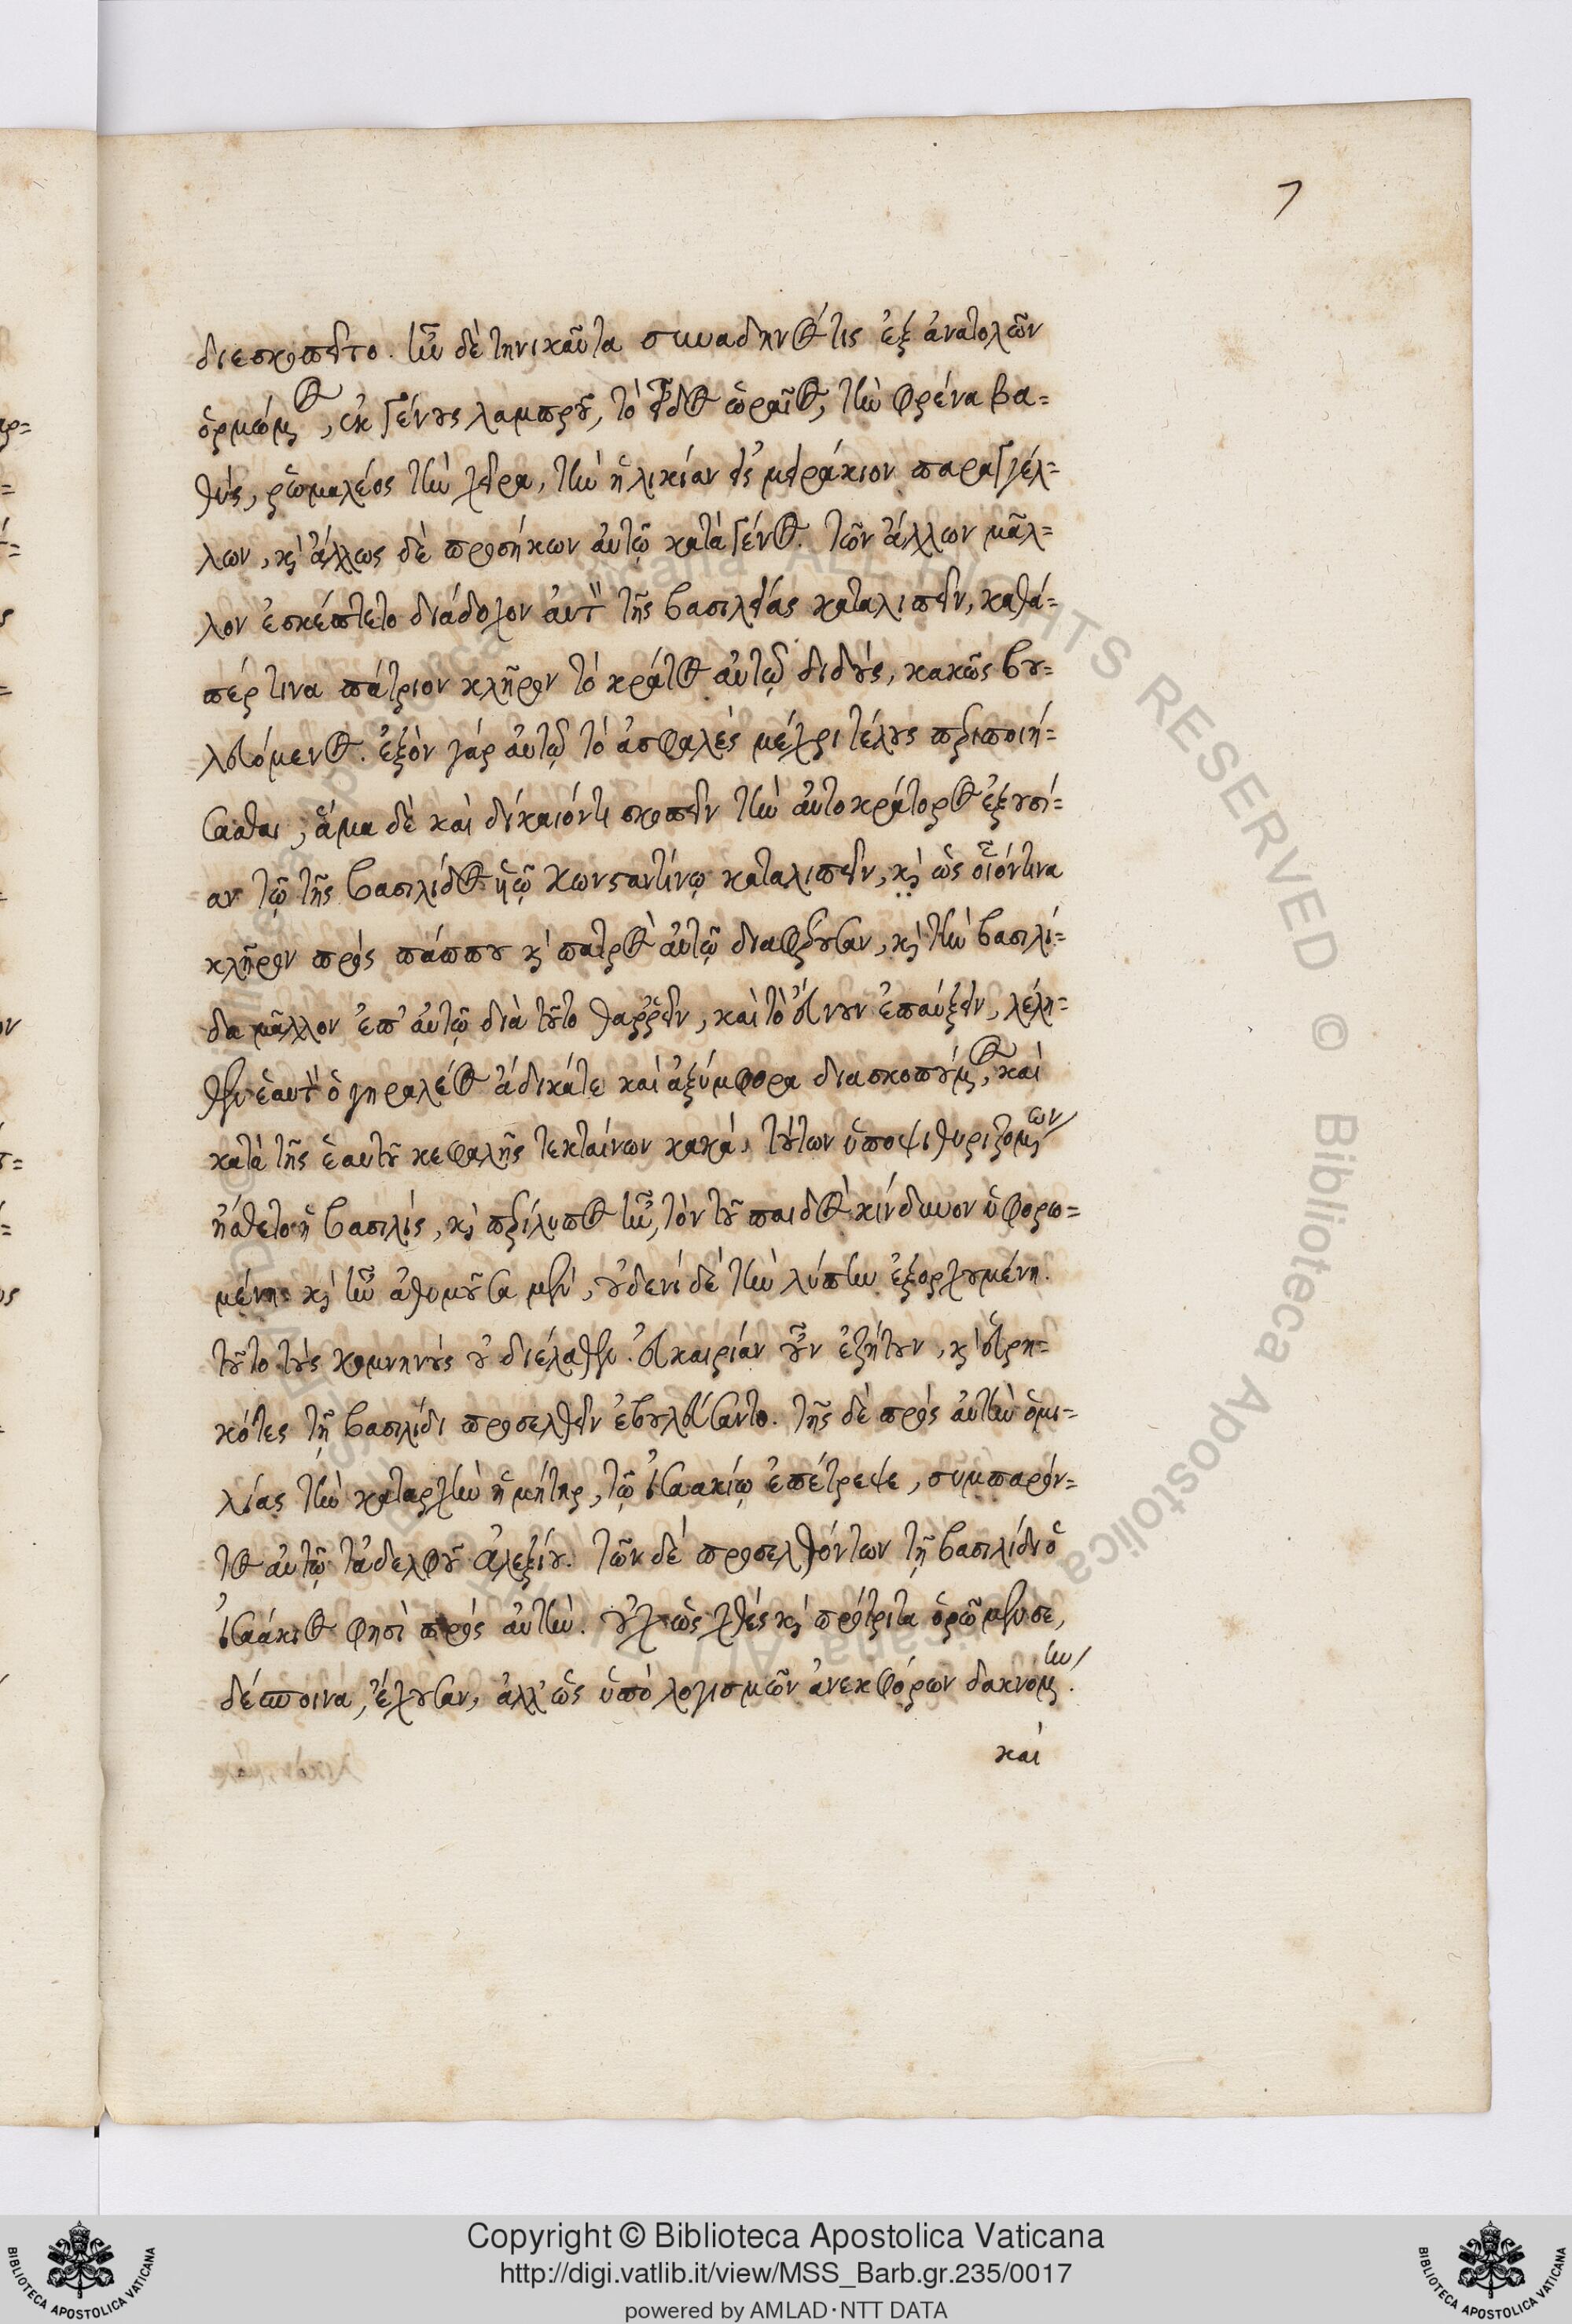 7
διεσκοπεῖτο. ἦν δὲ τηνικαῦτα συναδηνός τις ἐξ ἀνατολῶν
ὁρμώμενος, ἐκ γένους λαμπροῦ, τὸ εἶδος ὡραῖος, τὴν φρένα βα=
θύς, ῥωμαλέος τὴν χεῖρα, τὴν ἡλικίαν εἰς μειράκιον παραγγέλ=
λων, καὶ ἄλλως δὲ προσήκων αὐτῷ κατὰ γένος. τῶν ἄλλων μᾶλ=
λον ἐσκέπτετο διάδοχον αὐτὸν τῆς βασιλείας καταλιπεῖν, καθά=
πέρ τινα πάτριον κλῆρον τὸ κράτος αὐτῷ διδούς, κακῶς βου=
λευόμενος. ἐξὸν γάρ αὐτῷ τὸ ἀσφαλές μέχρι τέλους περιποιή=
σασθαι, ἅμα δὲ καὶ δίκαιόν τι σκοπεῖν τὴν αὐτοκράτορος ἐξουσί=
αν τῷ τῆς βασιλίδος υἱῷ Κωνσταντίνῳ καταλιπεῖν, καὶ ὡς οἷόν τινα
κλῆρον πρὸς πάππου καὶ πατρὸς αὐτῷ διαφέρουσαν, καὶ τὴν βασιλί=
δα μᾶλλον ἐπ' αὐτῷ διὰ τοῦτο θαῤῥεῖν, καὶ τὸ εὔνουν ἐπαύξειν, λέλη=
θεν ἑαυτὸν ὁ γηραλέος ἄδικάτε καὶ ἀξύμφορα διασκοπούμενος, καὶ
κατὰ τῆς ἑαυτοῦ κεφαλῆς τεκταίνων κακά. τούτων ὑποψιθυριζομένων
ᾔσθετο ἡ βασιλίς, καὶ περίλυπος ἦν, τὸν τοῦ παιδὸς κίνδυνον ὑφορω=
μένη. καὶ ἦν ἀθυμοῦσα μέν, οὐδενί δὲ τὴν λύπην ἐξορχουμένη.
τοῦτο τοὺς κομνηνούς οὐ διέλαθεν. εὐκαιρίαν οὖν ἐζήτουν, καὶ εὑρη=
κότες τῇ βασιλίδι προσελθεῖν ἐβουλεύσαντο. τῆς δὲ πρὸς αὐτὴν ὁμι=
λίας τὴν καταρχὴν ἡ μήτηρ, τῷ ἰσαακίῳ ἐπέτρεψε, συμπαρόν=
τος αὐτῷ τἀδελφοῦ ἀλεξίου. τῶν δὲ προσελθόντων τῇ βασιλίδι ὁ
ἰσαάκιος φησὶ πρὸς αὐτήν. οὐχ ὡς χθές καὶ πρότριτα ὁρῶμεν σε,
δέσποινα, ἔχουσαν, ἀλλ' ὡς ὑπὸ λογισμῶν ἀνεκφόρων δακνομένην.
καὶ
Copyright © Biblioteca Apostolica Vaticana
http://digi.vatlib.it/view/MSS_Barb.gr.235/0017
powered by AMLAD·NTT DATA